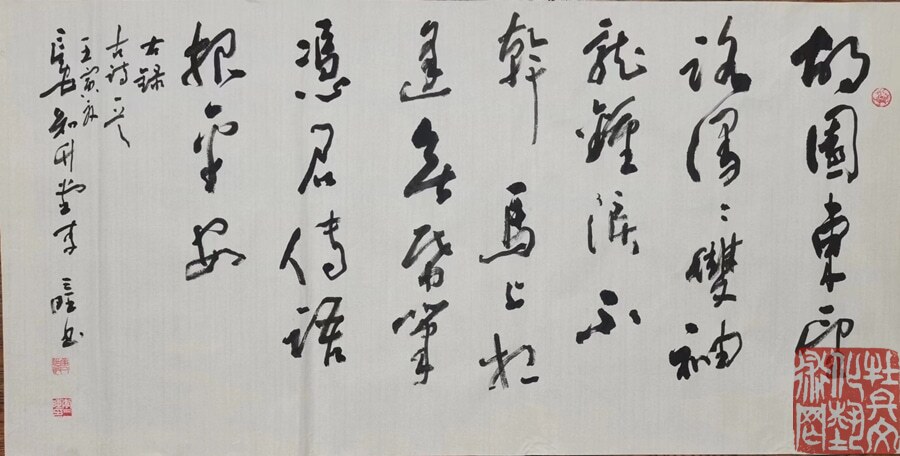 故園東望
路漫〻雙袖
龍鍾淚不
幹馬上相
逢無帋筆
憑君傳語
報平安
右録
古詩一首
壬寅
長安